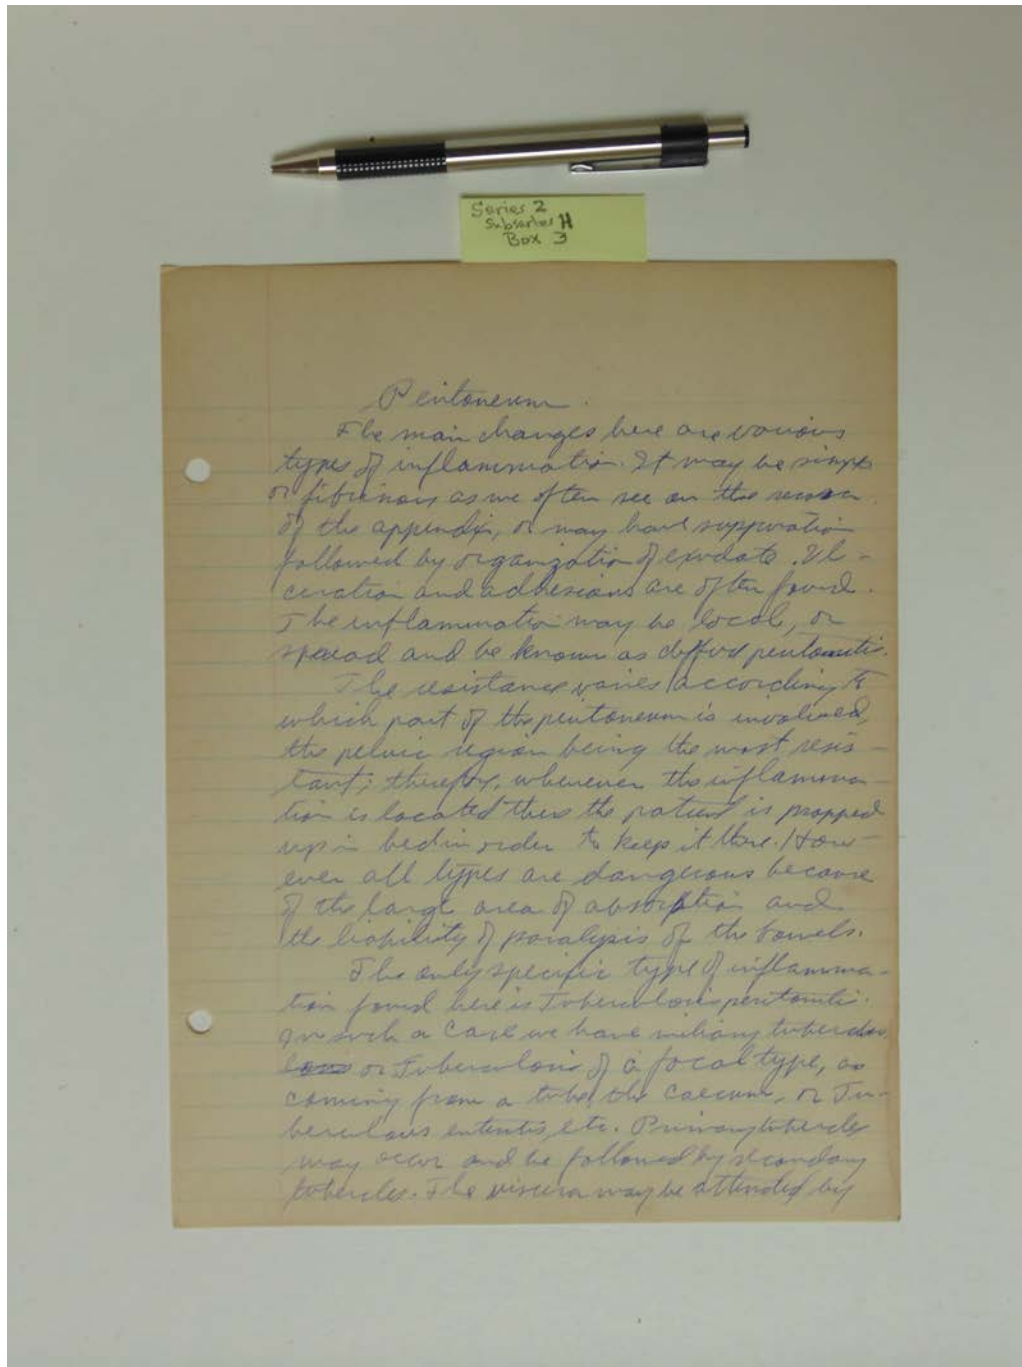 Series 2
Subseries H
Box 3
Peritoneum.
The main changes here are various
types of inflammation. It may be simple
or fibrinous as we often see on the serosa
of the appendix, or may have suppuration
followed by organization of exudate. Ul-
ceration and adhesions are often found.
The inflammation may be local, or
spread and be known as diffuse peritonitis.
The resistance varies according to
which part of the peritoneum is involved,
the pelvic region being the most resis-
tant; therefore, whenever the inflamma-
tion is located there the patient is propped
up in bed in order to keep it there. How-
ever all types are dangerous because
of the large area of absorption and
the liability of paralysis of the bowels.
The only specific type of inflamma-
tion found here is Tuberculosis peritonitis.
In such a case we have miliary tubercles,
or Tuberculosis of a focal type, as
coming from a tube, the caecum, or Tu-
berculous enteritis, etc. Primary tubercles
may occur and be followed by secondary
tubercles. The viscera may be attended by